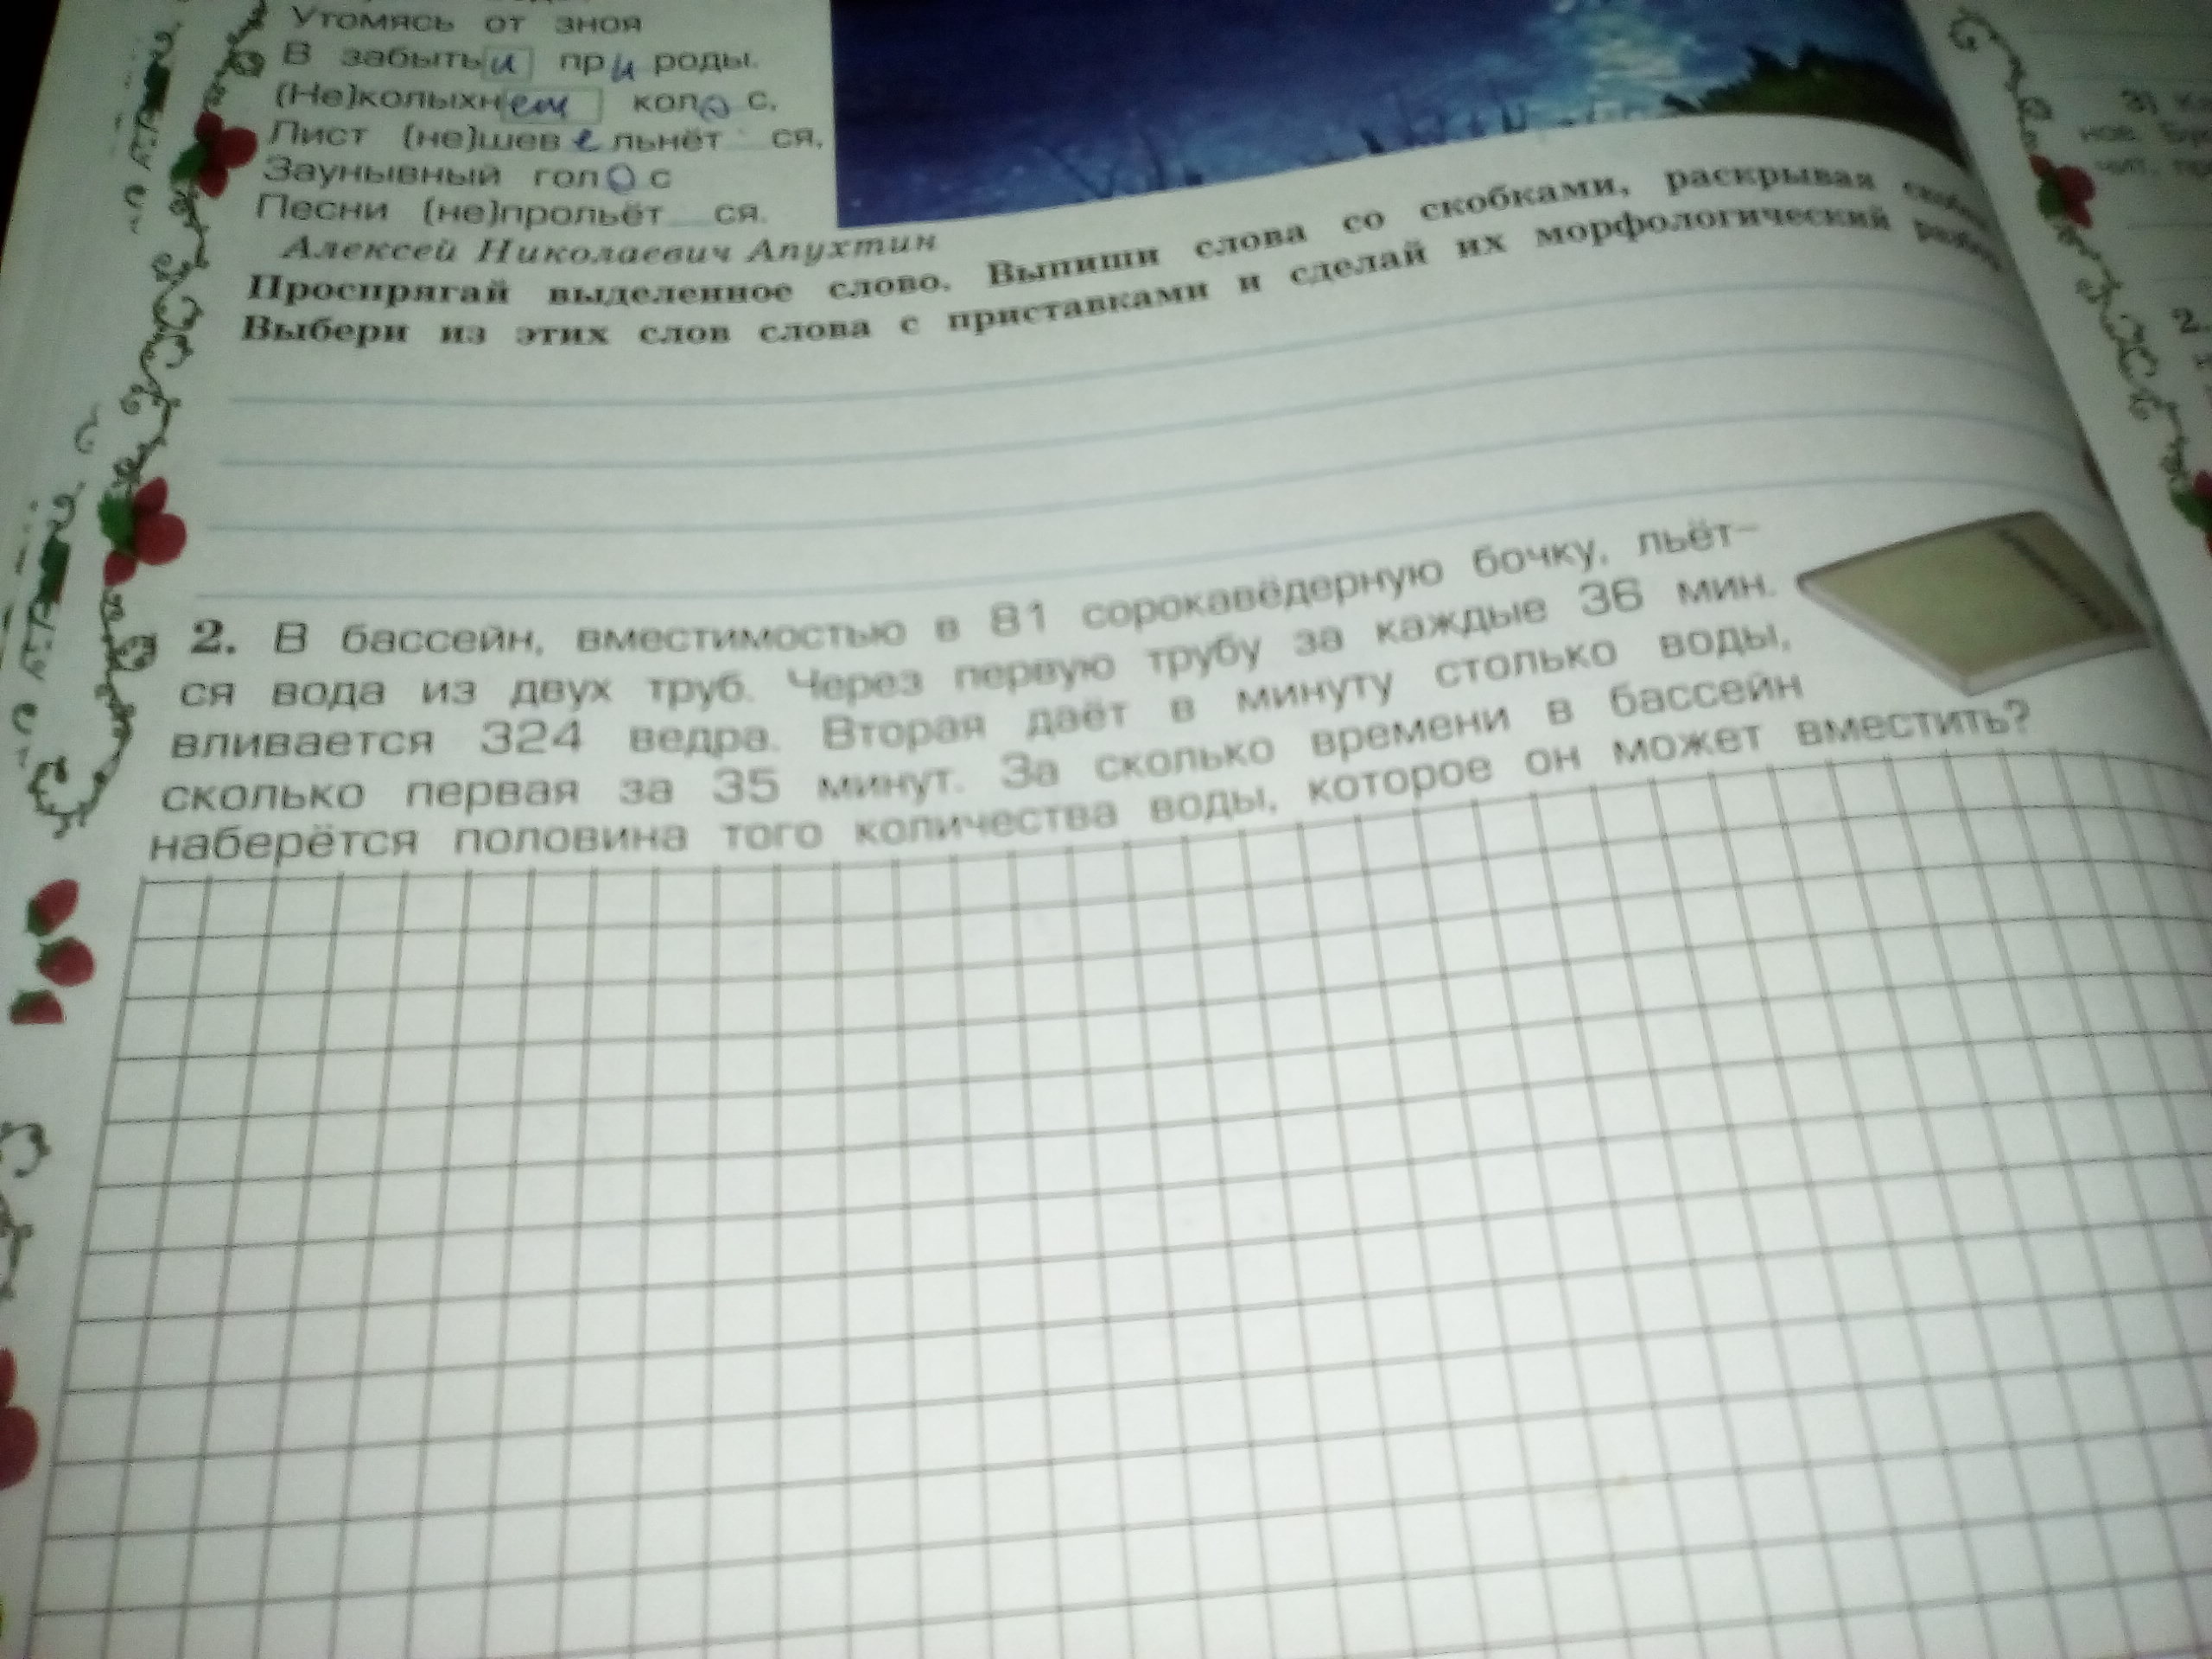 Утомясь от зноя
В забытьи природы.
(Не)колыхнет колос,
Лист (не)шевельнёт ся,
Заунывный голос
Песни (не)прольёт ся.
Алексей Николаевич Апухтин
Проспрягай выделенное слово. Выпиши слова со скобками, раскрывая
Выбери из этих слов слова с приставками и сделай их морфологический
2. В бассейн, вместимостью в 81 сорокавёдерную бочку, льёт-
ся вода из двух труб. Через первую трубу за каждые 36 мин.
вливается 324 ведра. Вторая даёт в минуту столько воды,
сколько первая за 35 минут. За сколько времени в бассейн
наберётся половина того количества воды, которое он может вместить?
3)
ное
2.